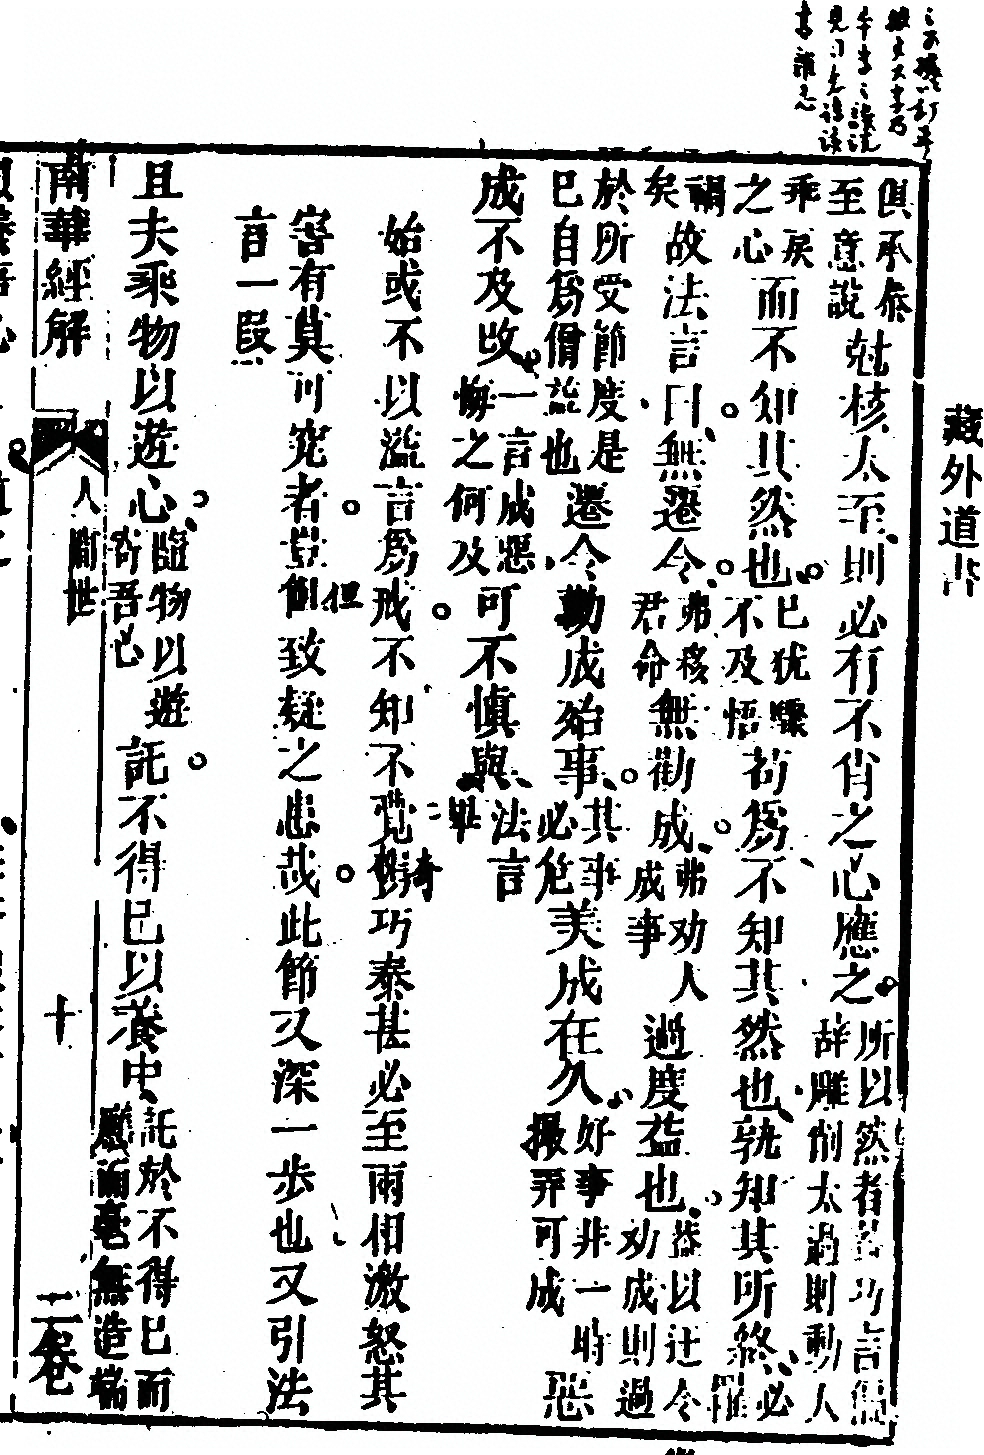 藏外道書
俱承泰
至意說
尅核太至則必有不肖之心應之
所以然者若巧言偏
辞雕削太過則動人
乖戾
之心
而不知其然也
已犹驟
不及悟
苟爲不知其然也孰知其所終
必罹
禍矣
故法言曰無遷令
弗移
君命
無勸成
弗劝人
成事
過度益也
葢以迁令
劝成則過
於所受節度是
已自爲僭溢也
遷令勸成殆事
其事
必危
美成在久
好事非一時
撮弄可成
惡
成不及改
一言成惡
悔之何及
可不慎與
法言
畢
始或不以溢言爲戒不知不覺奇巧泰甚必至兩相激怒其
害有莫可究者豈但致疑之患哉此節又深一步也又引法
言一段
且夫乘物以遊心
臨物以遊
寄吾心
託不得已以養中
託於不得已而
應而毫無造端
南華經解 人間世 十 二卷